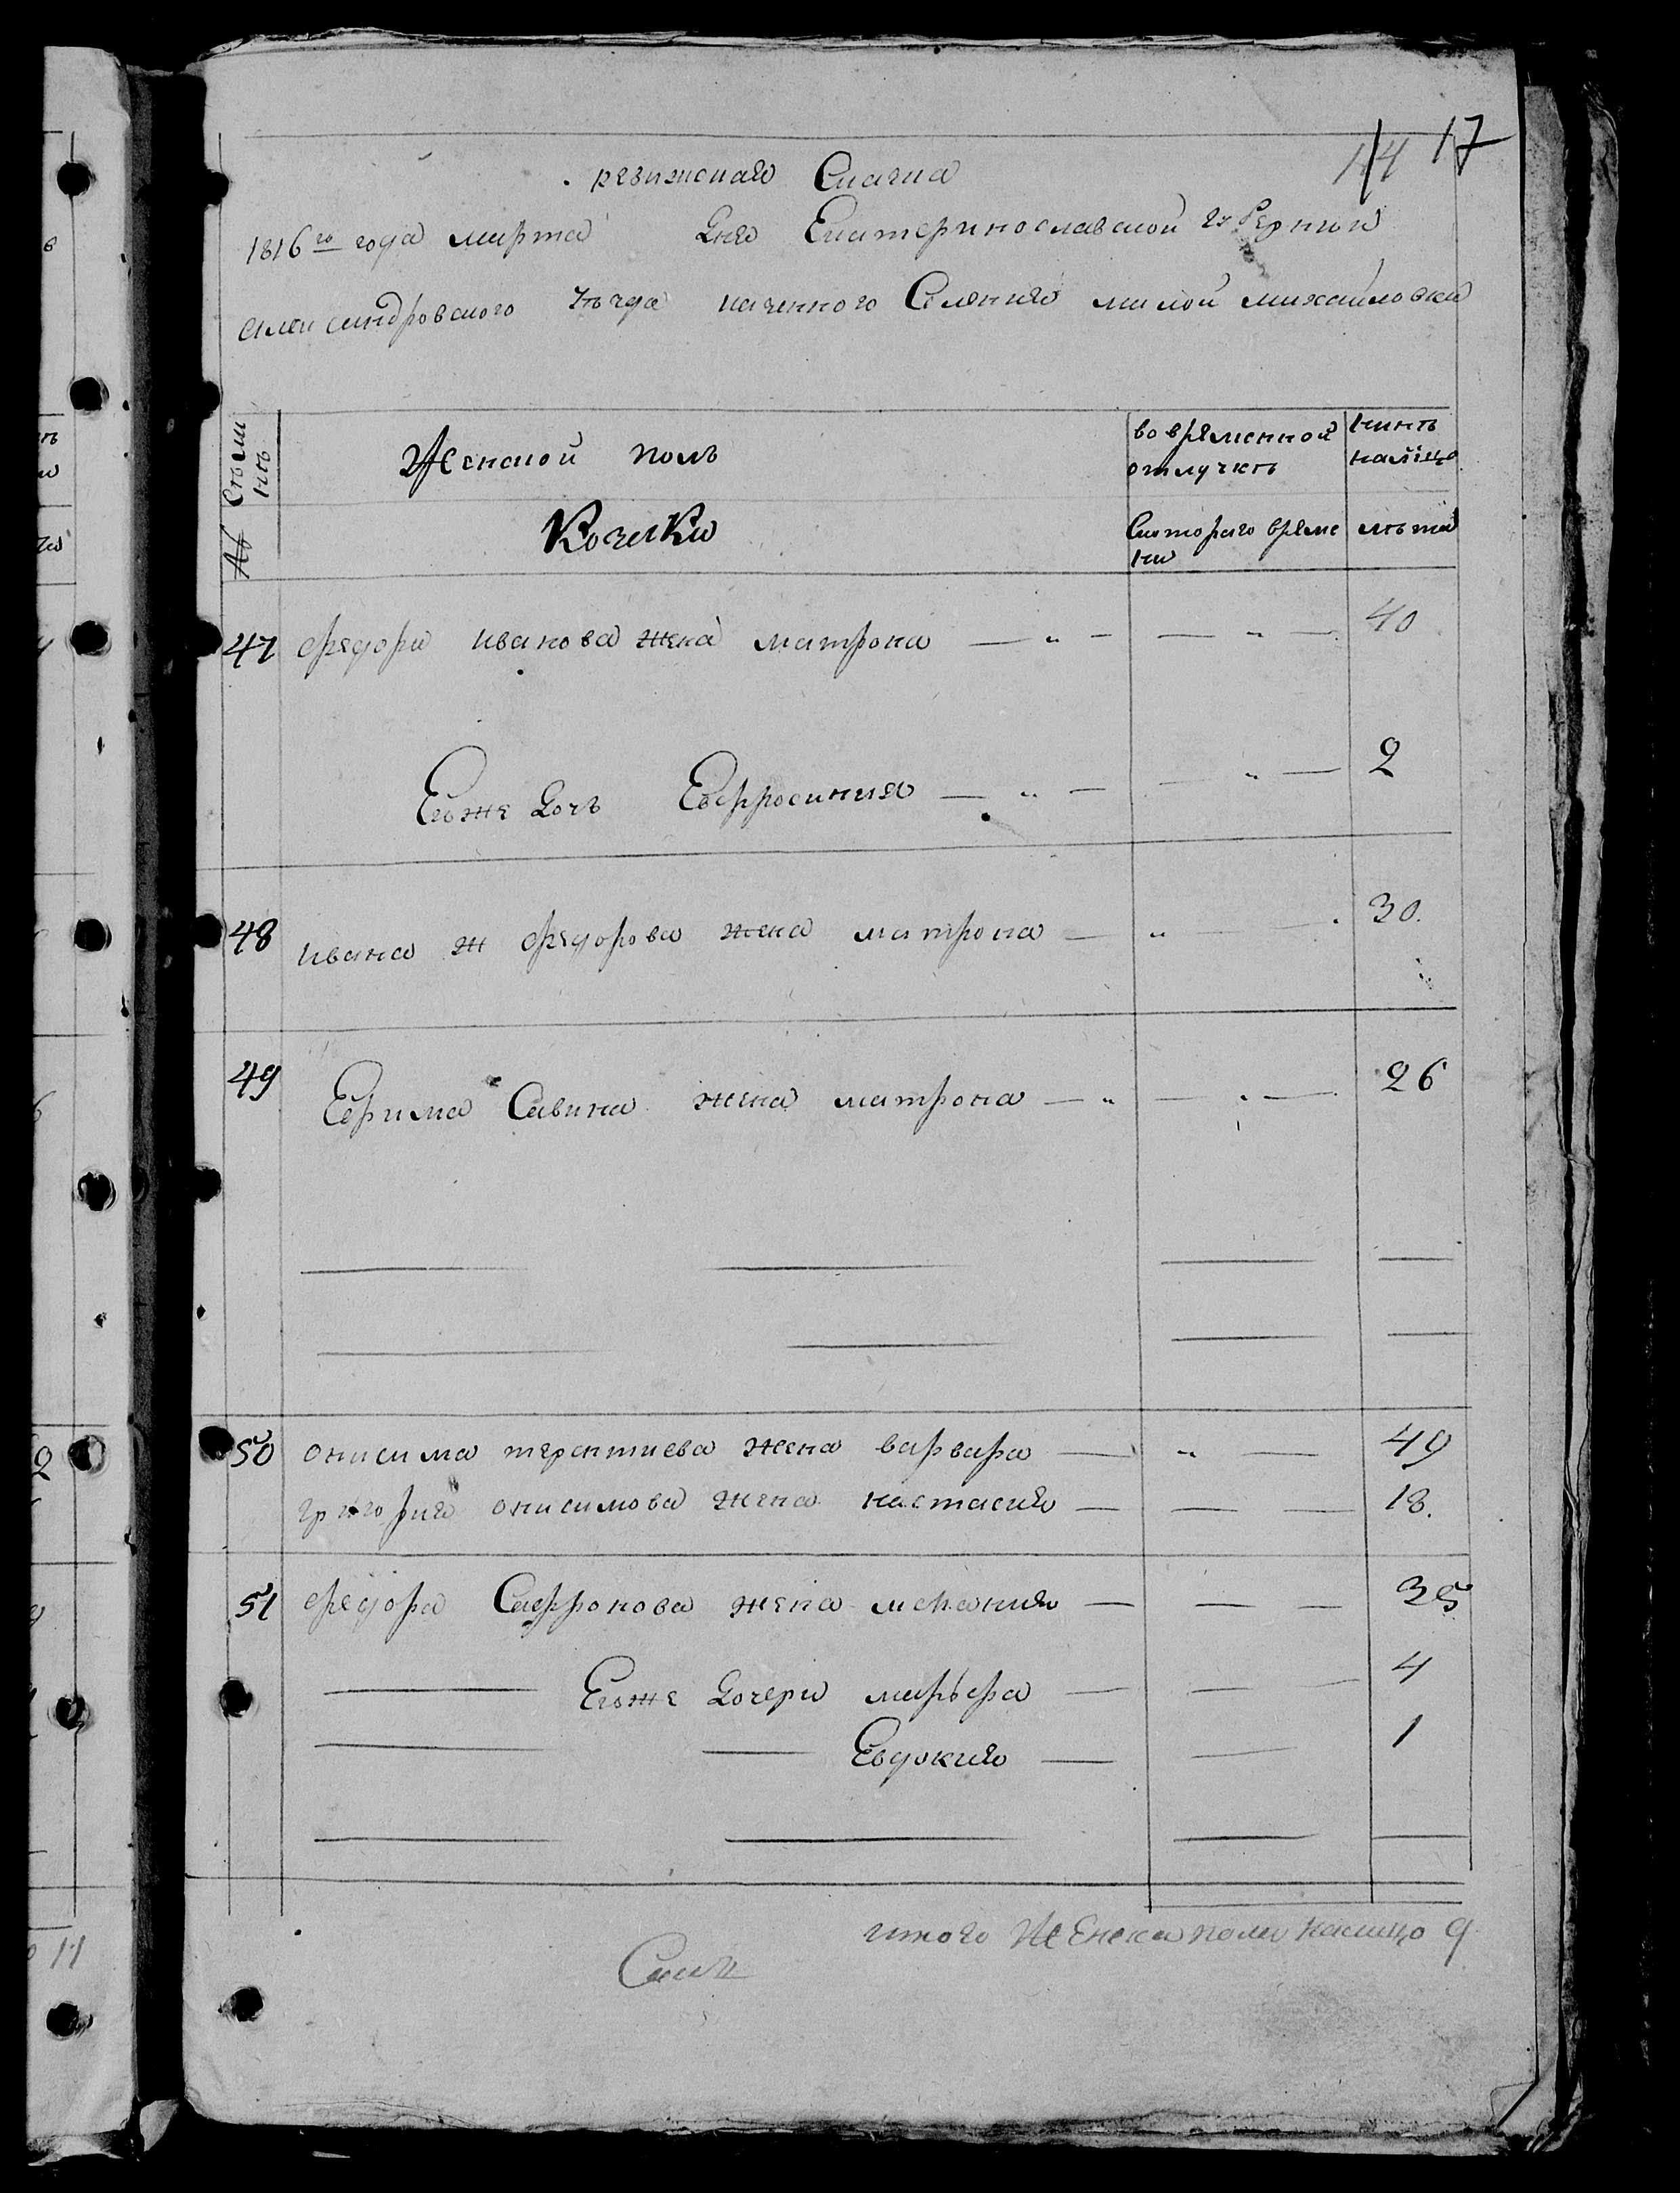 14 17
ревижская Сказка
1816го года марта Дня Екатеринославской губернии
александровского уѣзда казенного Селения малой михайловки
№ Сѣмѣи
Женской полъ
во вряменной отлучкѣ
нинѣ налицо
Козаки
Скоторого времени
лѣта
47 фядора иванова жена матрона — „ — — „ — 40
Егоже Дочь Евфросиния — „ — — „ — 2
48 ивана ж фядорова жена матрона — „ — 30.
49 Ефима Савина жена матрона — „ — — 26
50 онисима терентиева жена варвара — „ — 49
григория онисимова жена настасия — — — 18.
51 фядора Сафронова жена мелания — — — 35
Егоже Дочери марьфа — — 4
Евдокия — — 1
итого Женска пола налицо 9